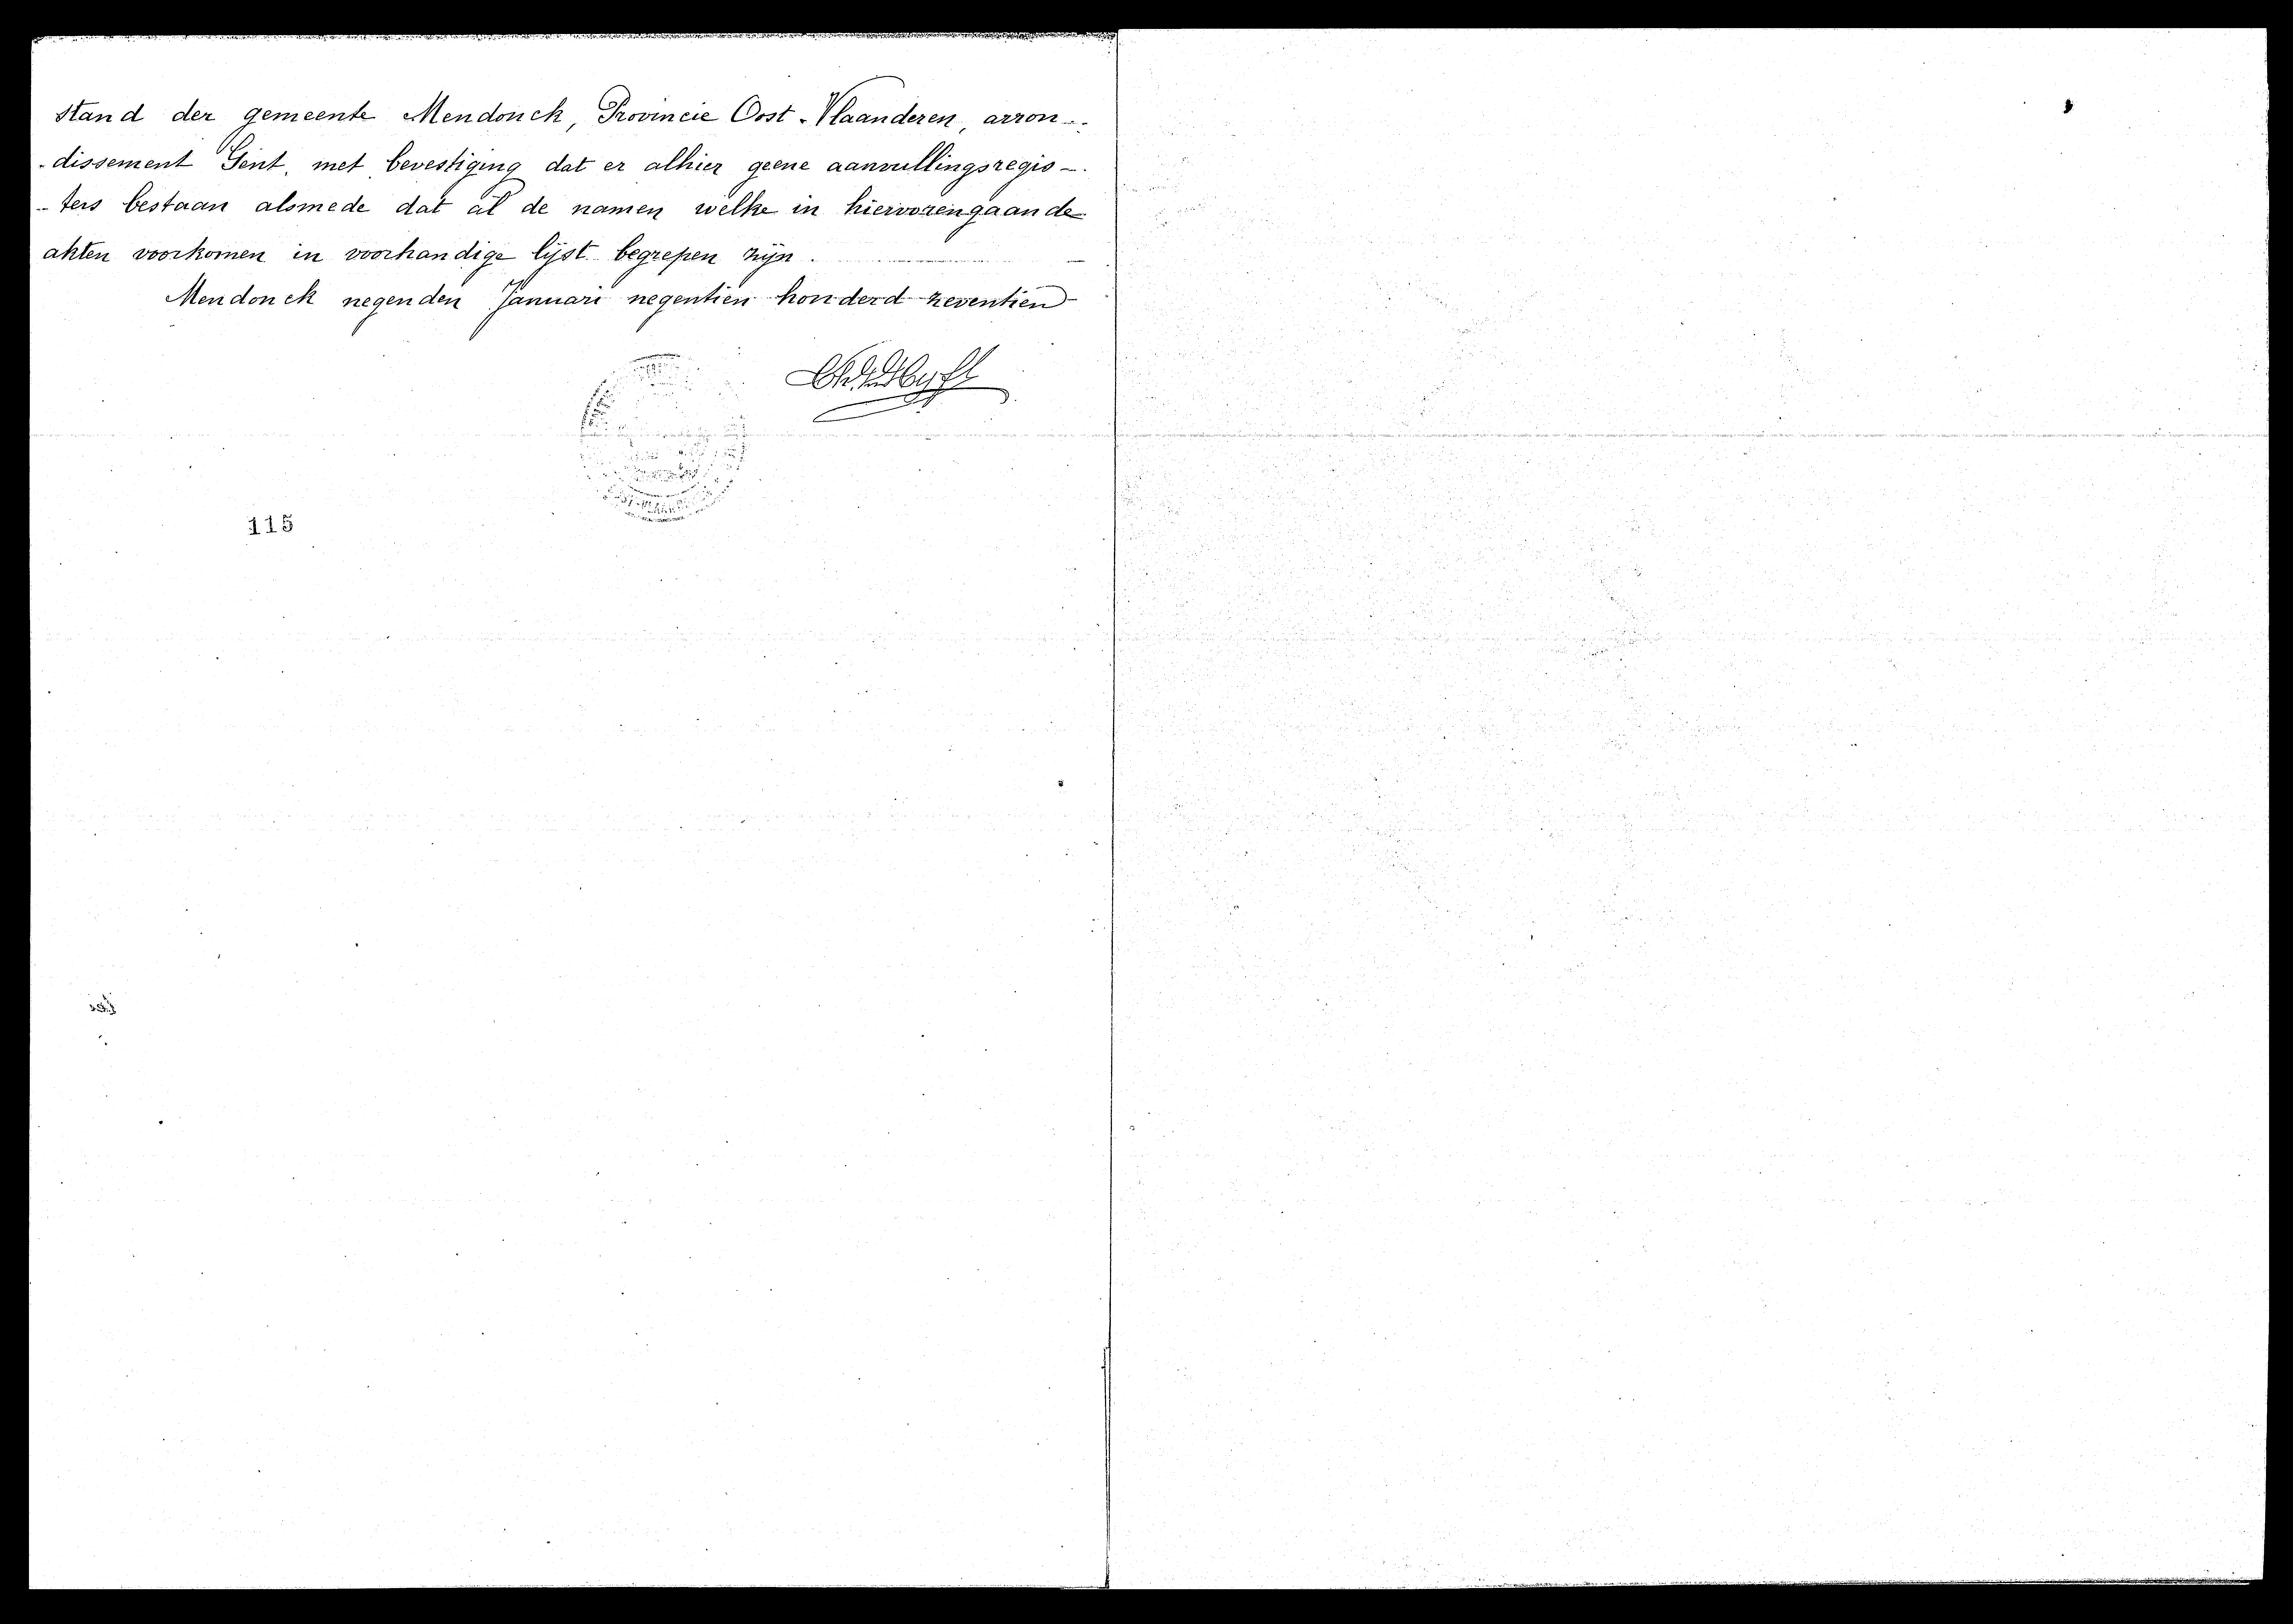 stand der gemeente Mendonck, Provincie Oost-Vlaanderen, arron-
-dissement Gent, met bevestiging dat er alhier geene aanvullingsregis-
-ters bestaan alsmede dat al de namen welke in hiervorengaande
akten voorkomen in voorhandige lijst begrepen zijn.
Mendonck negenden Januari negentien honderd zeventien
115